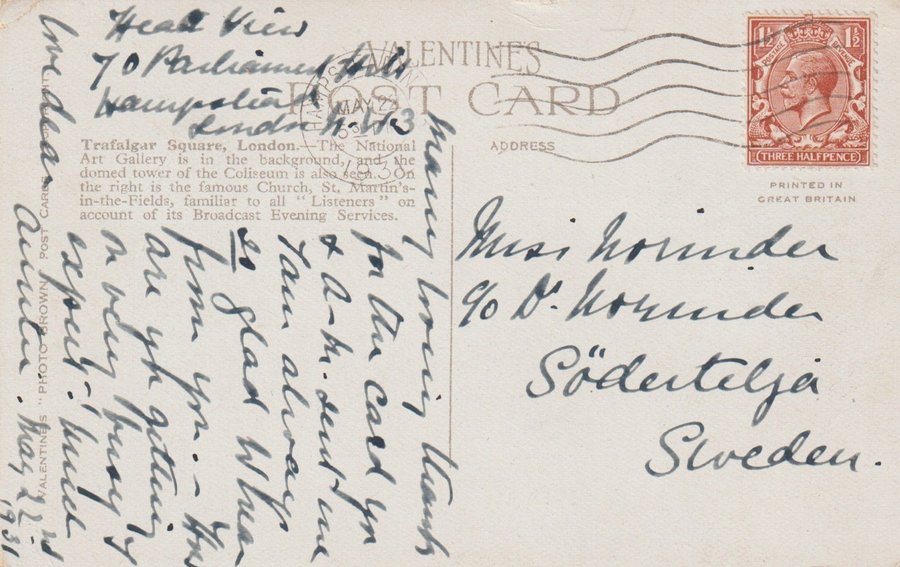 Heath View
70 Parliament Hill
Hampstead
London N.W.3
VALENTINE'S
POST CARD
MAY 22
Trafalgar Square, London.—The National
Art Gallery is in the background, and the
domed tower of the Coliseum is also seen. On
the right is the famous Church, St. Martin's-
in-the-Fields, familiar to all "Listeners" on
account of its Broadcast Evening Services.
Many loving thanks
for the card you
sent me
I am always
so glad when
from you. - How
are you getting
on very busy
expect. Much
love dear
May 22nd
1931
VALENTINES "PHOTO BROWN" POST CARD
ADDRESS
1½ 1½
POSTAGE REVENUE
THREE HALFPENCE
PRINTED IN
GREAT BRITAIN
Miss Norinder
c/o Dr. Norinder
Södertelja
Sweden.